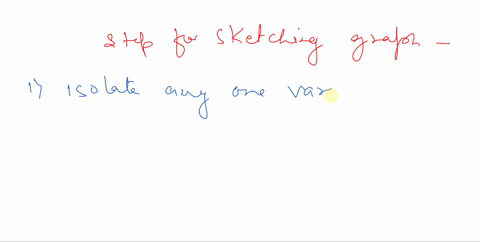 step for sketching graph -
1) isolate any one var